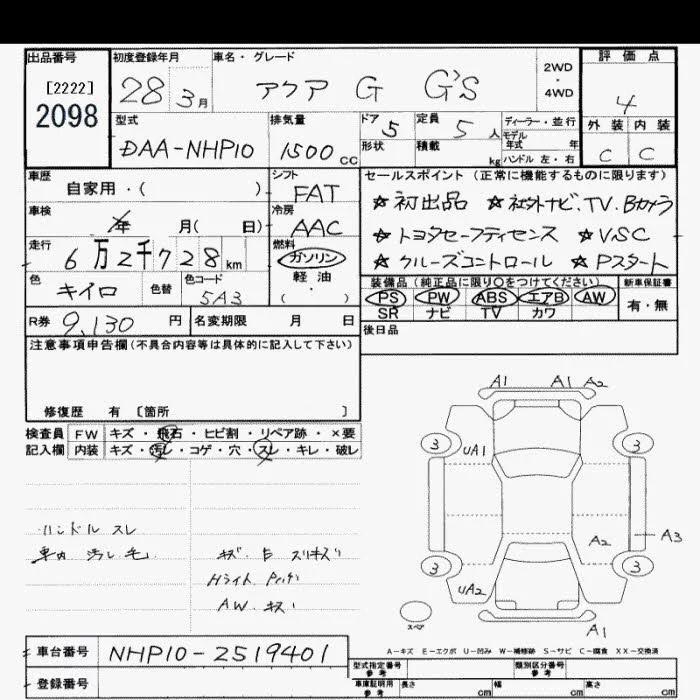 出品番号 初度登録年月 車名・グレード 評価点
[2222] 28 3月 アクア G G'S 2WD・4WD 4
2098
型式 排気量 ドア 5 定員 5 人 ディーラー・並行 外装 内装
モデル年式 年
DAA-NHP10 1500cc 形状 積載 kg ハンドル 左・右 C C
車歴 シフト セールスポイント (正常に機能するものに限ります)
自家用・( ) FAT ☆初出品 ☆社外ナビ、TV、Bカメラ
車検 年 月( 日) 冷房 AAC ☆トヨタセーフティセンス ☆VSC
走行 6万2千728km 燃料 ガソリン ☆クルーズコントロール ☆Pスタート
軽・油
・( )
色 キイロ 色替 色コード 5A3
装備品 (純正品に限り○をつけてください) 新車保証書
PS PW ABS エアB AW 有・無
SR ナビ TV カワ
R券 9,130 円 名変期限 月 日 後日品
注意事項申告欄(不具合内容等は具体的に記入して下さい)
修復歴 有 〔箇所 〕
検査員 FW キズ・飛石・ヒビ割・リペア跡・×要
記入欄 内装 キズ・汚レ・コゲ・穴・スレ・キレ・破レ
A1 A1 A2
3 3
UA1
A2 A3
3 3
UA2
スペア
A1
ハンドル スレ
車内 汚レ 毛
キズ
Hライト
AW キズ
A-キズ E-エクボ U-凹み W-補修跡 S-サビ C-腐食 XX-交換済
車台番号 NHP10-2519401
登録番号
型式指定番号 参考 類別区分番号 参考
車庫証明用 参考 長さ cm 幅 cm 高さ cm